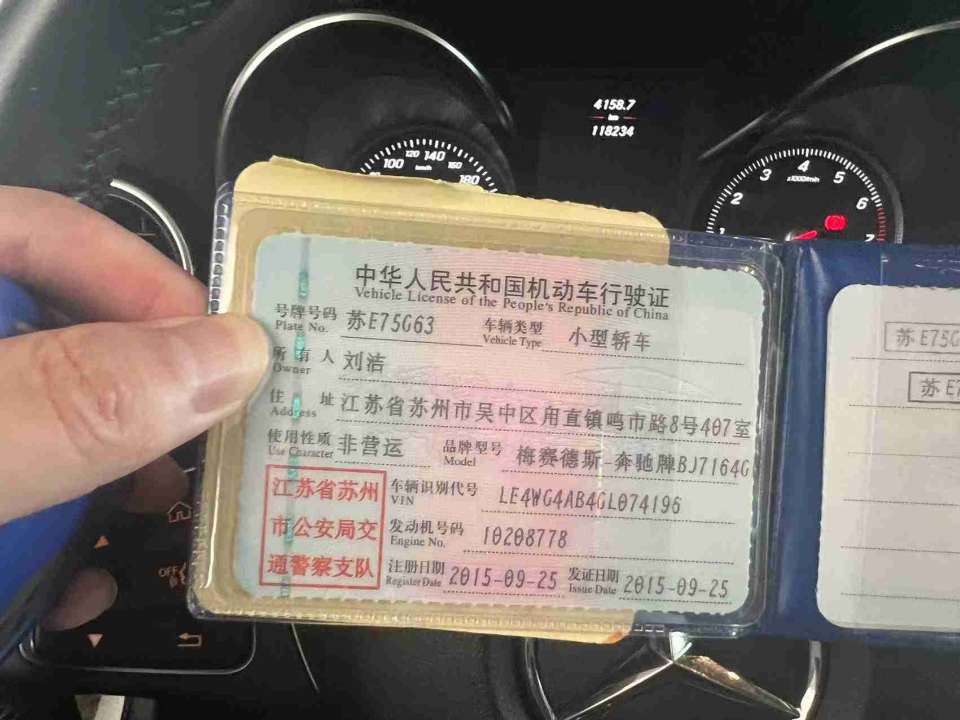 4158.7
km
118234
100 120 140 160 180
km/h
1 2 3 4 5 6 7
x1000/min
中华人民共和国机动车行驶证
Vehicle License of the People's Republic of China
号牌号码 苏E75G63 车辆类型 小型轿车
Plate No. Vehicle Type
所有人 刘洁
Owner
住址 江苏省苏州市吴中区甪直镇鸣市路8号407室
Address
使用性质 非营运 品牌型号 梅赛德斯-奔驰牌BJ7164G
Use Character Model
江苏省苏州
市公安局交
通警察支队
车辆识别代号 LE4WG4AB4GL074196
VIN
发动机号码 10208778
Engine No.
注册日期 2015-09-25 发证日期 2015-09-25
Register Date Issue Date
苏E75G
苏E7
OFF